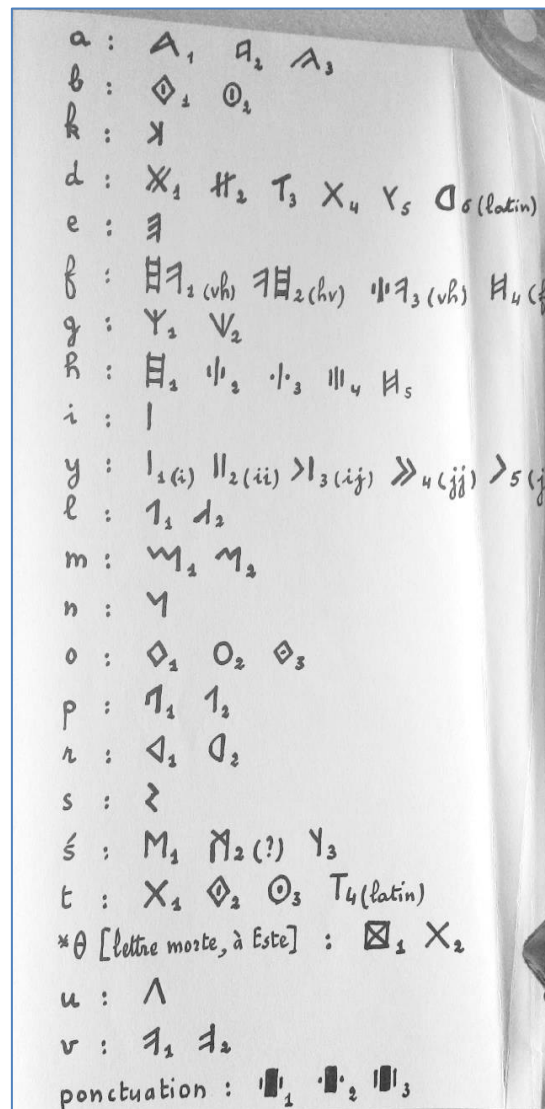 a : 𐌀₁ 𐌀₂ 𐌀₃
b : 𐌈₁ ʘ₂
k : 𐌊
d : X₁ H₂ T₃ X₄ Y₅ D₆(latin)
e : 𐌄
f : 𐌇𐌅₁(vh) 𐌅𐌇₂(hv) ·|·𐌅₃(vh) H₄
g : Y₁ Ѱ₂
h : 𐌇₁ ı|ı₂ ·|·₃ |||₄ H₅
i : |
y : |₁(i) ||₂(ii) >|₃(ij) >>₄(jj) >₅
l : 𐌋₁ 𐌋₂
m : 𐌌₁ 𐌌₂
n : 𐌍
o : ◇₁ O₂ ◇₃
p : 𐌐₁ 𐌐₂
r : 𐌓₁ 𐌓₂
s : 𐌔
ś : M₁ 𐌑₂(?) Y₃
t : X₁ ◇₂ ʘ₃ T₄(latin)
*θ [lettre morte, à Este] : ⊠₁ X₂
u : Λ
v : 𐌅₁ 𐌅₂
ponctuation : ı▮ı₁ ·▮·₂ |▮|₃